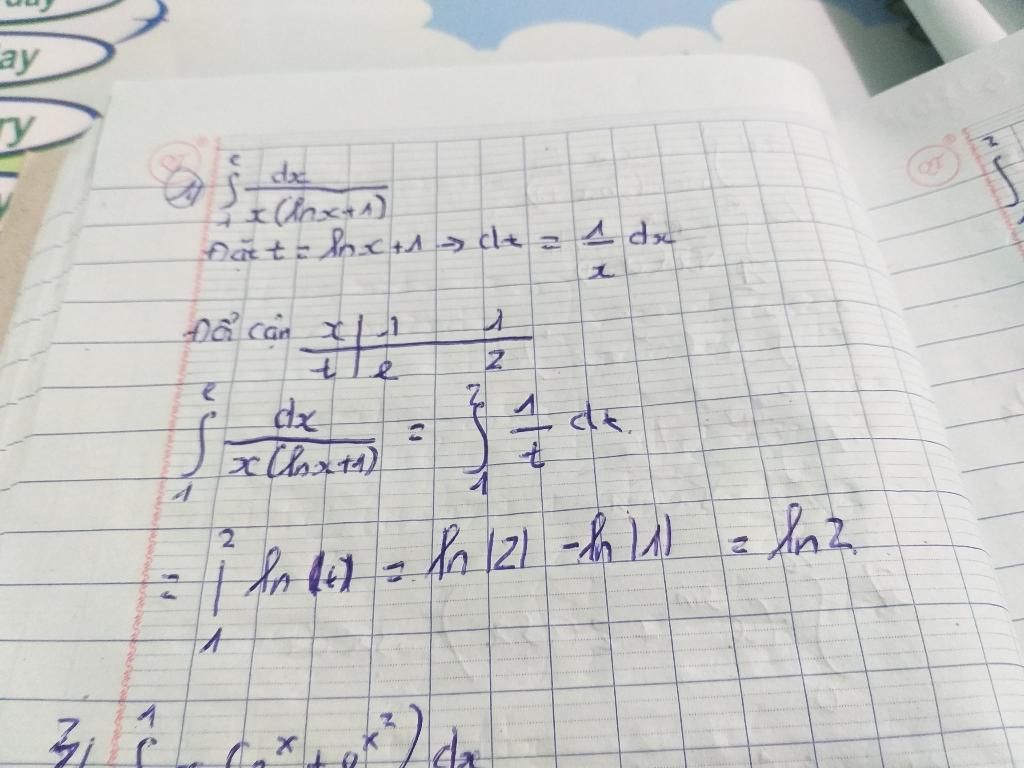 day
ay
ry
1) ∫₁ᵉ dx / x(lnx+1)
Đặt t = lnx+1 → dt = 1/x dx
Đổi cận x | 1 1
t | e 2
∫₁ᵉ dx / x(lnx+1) = ∫₁² 1/t dt.
= |₁² ln|t| = ln|2| - ln|1| = ln2.